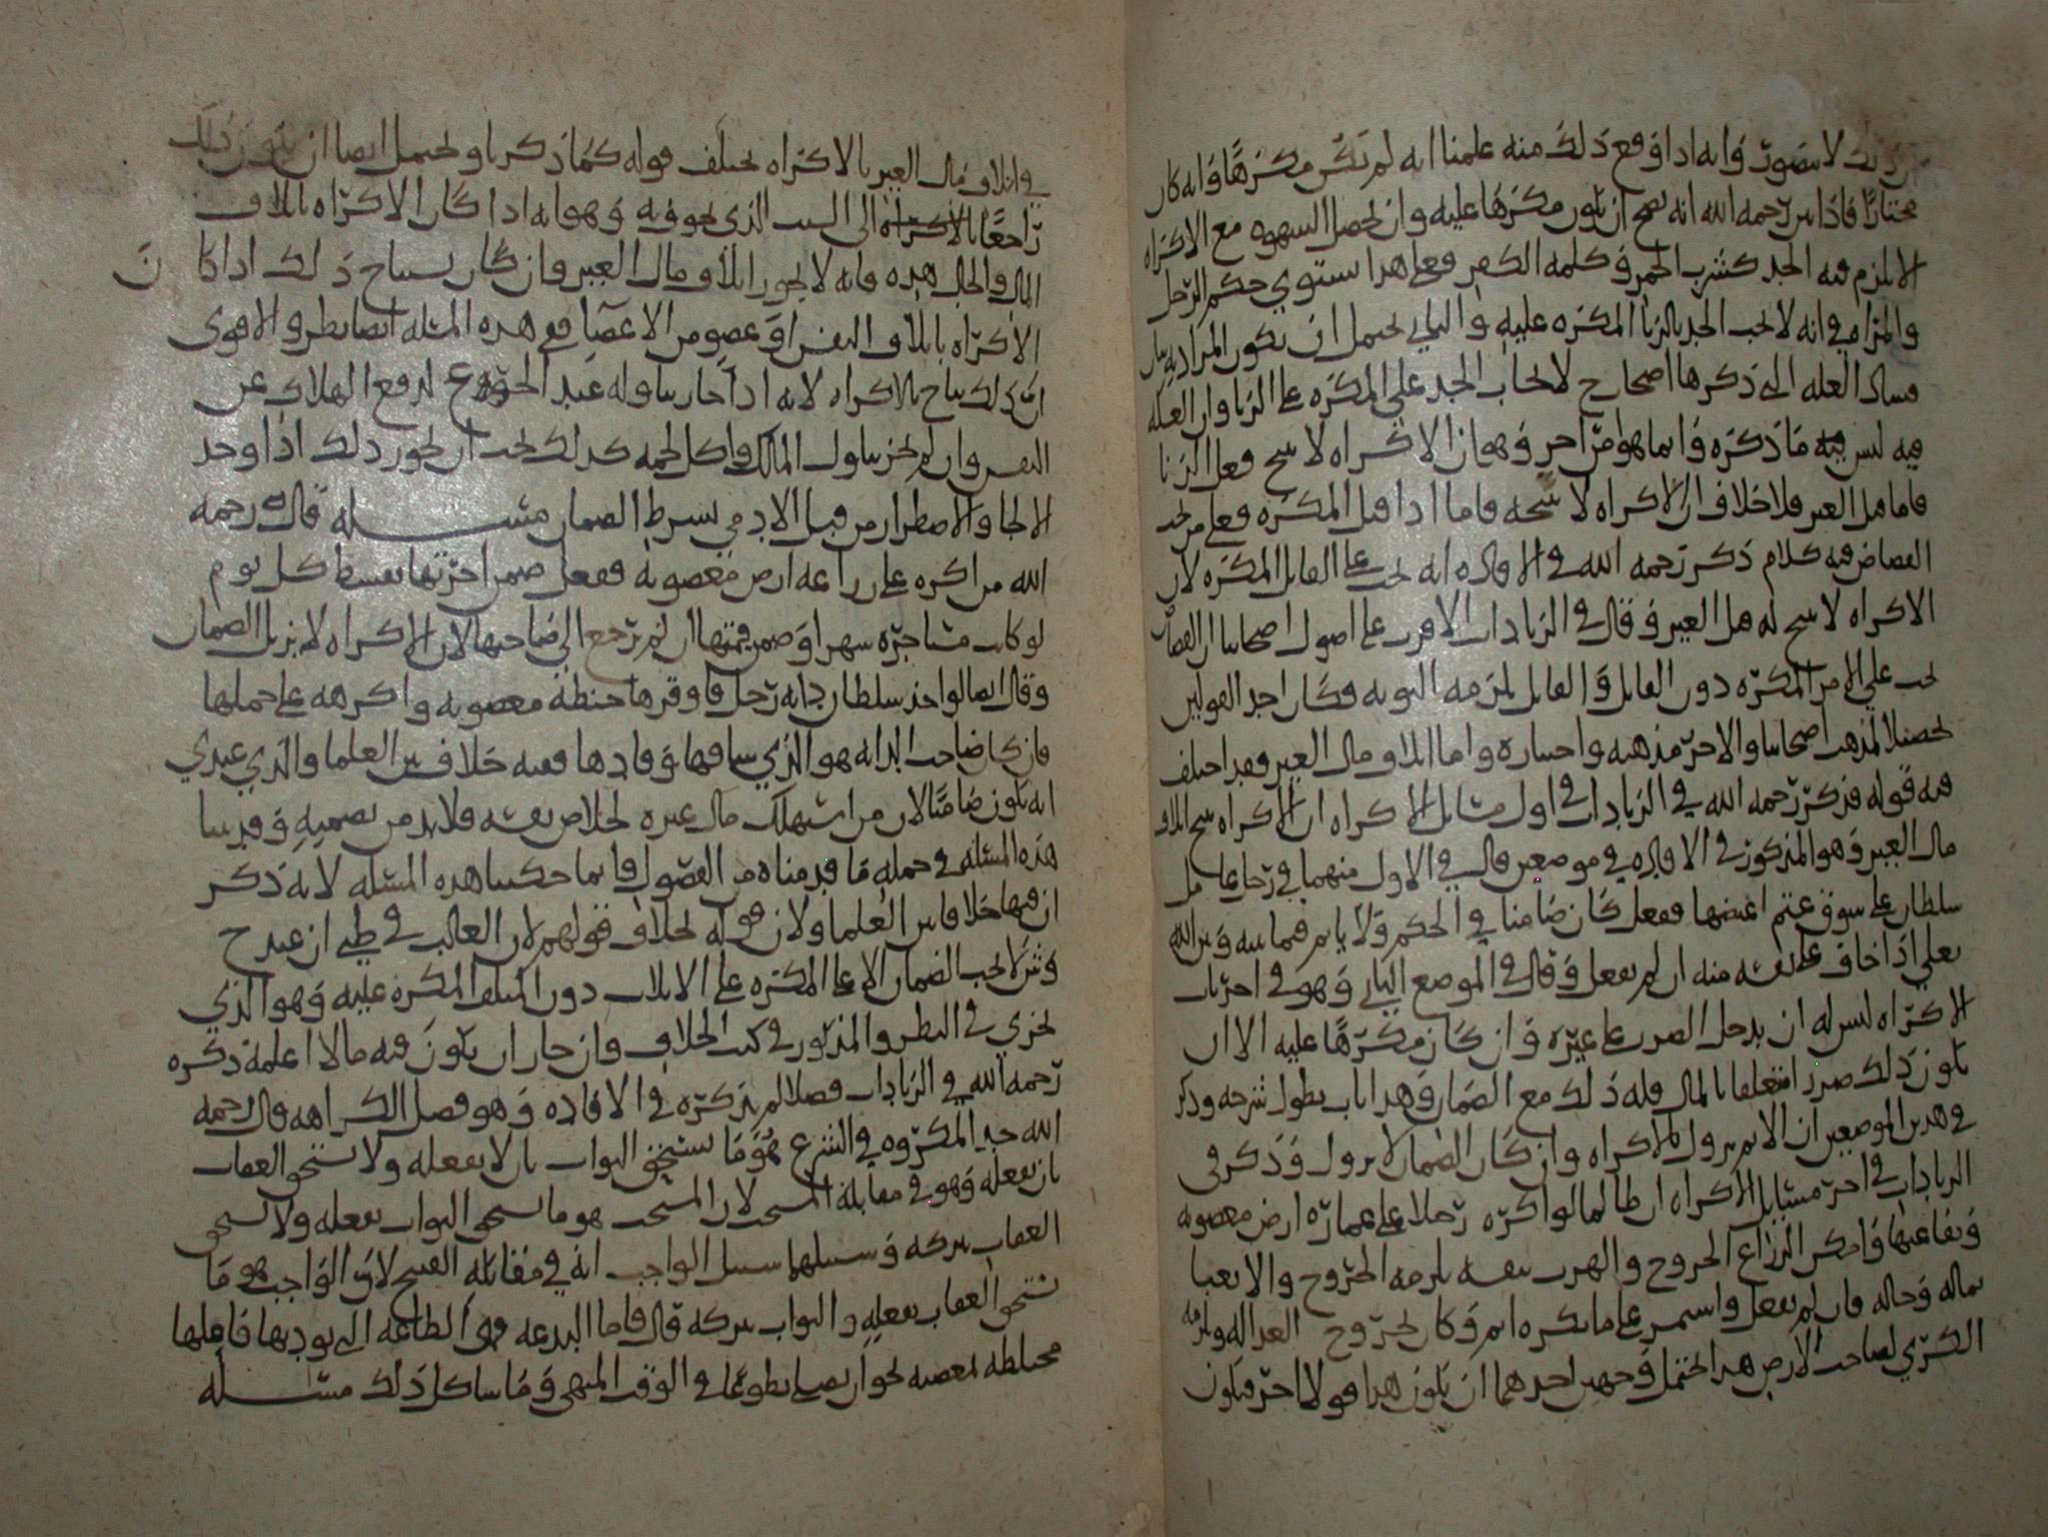 ذلك لا يتصور وانه اذا وقع ذلك منه علمنا انه لم يكن مكرها وانه كان
مختارا فاذا بين رحمه الله انه يصح ان يكون مكرها عليه وان تحصل الشهوه مع الاكراه
لا يلزم فيه الحد كشرب الخمر وكلمه الكفر فعلى هذا يستوي حكم الرجل
والمراه في انه لا يجب الحد بالزنا المكره عليه والثاني يحتمل ان يكون المراد به بيان
فساد العله التي ذكرها اصحاب ح لايجاب الحد على المكره على الزنا وان العله
فيه ليس فيه ما ذكره وانما هو امر اخر وهو ان الاكراه لا يبيح فعل الزنا
فاما قتل الغير فلا خلاف ان الاكراه لا يبيحه فاما اذا قتل المكره فعلى من يجب
القصاص فيه كلام ذكر رحمه الله في الافاده انه يجب على القاتل المكره لان
الاكراه لا يبيح له قتل الغير وقال في الزيادات الاقرب على اصول اصحابنا ان القصاص
يجب على الامر المكره دون القاتل والقاتل يلزمه التوبه فكان احد القولين
تحصيلا لمذهب اصحابنا والاخر مذهبه واختياره واما اتلاف مال الغير فقد اختلف
فيه قوله فذكر رحمه الله في الزيادات في اول مسائل الاكراه ان الاكراه يبيح اتلاف
مال الغير وهو المذكور في الافاده في موضعين قال في الاول منهما في رجل
سلطان على سوق غنم اغتصبها ففعل كان ضامنا في الحكم ولا ياثم فيما بينه وبين الله
تعالى اذا خاف على نفسه منه ان لم يفعل وقال في الموضع الثاني وهو في اخر باب
الاكراه ليس له ان يدخل الضرر على غيره وان كان مكرها عليه الا ان
يكون ذلك ضررا متعلقا بالمال فله ذلك مع الضمان وهذا باب يطول شرحه وذكر
في هذين الموضعين ان الاثم يزول بالاكراه وان كان الضمان لا يزول وذكر في
الزيادات في اخر مسائل الاكراه ان ظالما لو اكره رجلا على عماره ارض مغصوبه
وبقاعها وامكن الزراع الخروج والهرب بنفسه يلزمه الخروج والا يعبا
بماله وحاله فان لم يفعل واستمر على ما يكره اثم وكان لخروج العداله ولزمه
الكري لصاحب الارض هذا يحتمل وجهين احدهما ان يكون هذا قولا اخر فيكون
في اتلاف مال الغير بالاكراه يختلف قوله كما ذكرنا ويحتمل ايضا ان يكون ذلك
راجعا بالاكراه الى السبب الذي يخوف به وهو انه اذا كان الاكراه باتلاف
المال والحال هذه فانه لا يجوز اتلاف مال الغير وان كان يستباح ذلك اذا كان
الاكراه باتلاف النفس او عضو من الاعضا فع هذه المسله ايضا نظر والاقوى
ان ذلك يباح بالاكراه لانه اذا جاز تناوله عند الجوع لدفع الهلاك عن
النفس وان لم يجز تناول المالك واكل لحمه كذلك يجب ان يجوز ذلك اذا وجد
الالجا والاضطرار من قبل الادمي بشرط الضمان مسله قال رحمه
الله من اكره على زراعه ارض مغصوبه ففعل ضمن اجرتها بقسط كل يوم
لو كانت مستاجره شهرا وضمن قيمتها ان لم ترجع الى صاحبها لان الاكراه لا يزيل الضمان
وقال ايضا لو اخذ سلطان دابه رجل فاوقرها حنطة مغصوبه واكرهه على حملها
فان كان صاحب الدابه هو الذي ساقها وقادها ففيه خلاف بين العلما والذي عندي
انه يكون ضامنا لان من استهلك مال غيره لخلاص نفسه فلا بد من تضمينه وقد بينا
هذه المسئله في جمله ما قدمناه من الفصول فانما حكينا هذه المسئله لانه ذكر
ان فيها خلافا بين العلما ولان قوله بخلاف قولهم لان الغالب في ظني ان عند ح
وش لا يجب الضمان الا على المكره على الاتلاف دون المتلف المكره عليه وهو الذي
يجري في النظر والمذكور في كتب الخلاف وان جاز ان يكون فيه ما لا اعلمه ذكره
رحمه الله في الزيادات فصلا لم يذكره في الافاده وهو فصل الكراهه قال رحمه
الله حد المكروه في الشرع هو ما يستحق الثواب بان لا يفعله ولا يستحق العقاب
بان يفعله وهو في مقابلة المستحب لان المستحب هو ما يستحق الثواب بفعله ولا يستحق
العقاب بتركه وسبيلهما سبيل الواجب انه في مقابله القبيح لان الواجب هو ما
يستحق العقاب بفعله والثواب بتركه قال فاما البدعه فهي الطاعه التي يوديها فاعلها
مختلطه بمعصيه نحو ان يصلي تطوعا في الوقت المنهي وما شاكل ذلك مسله